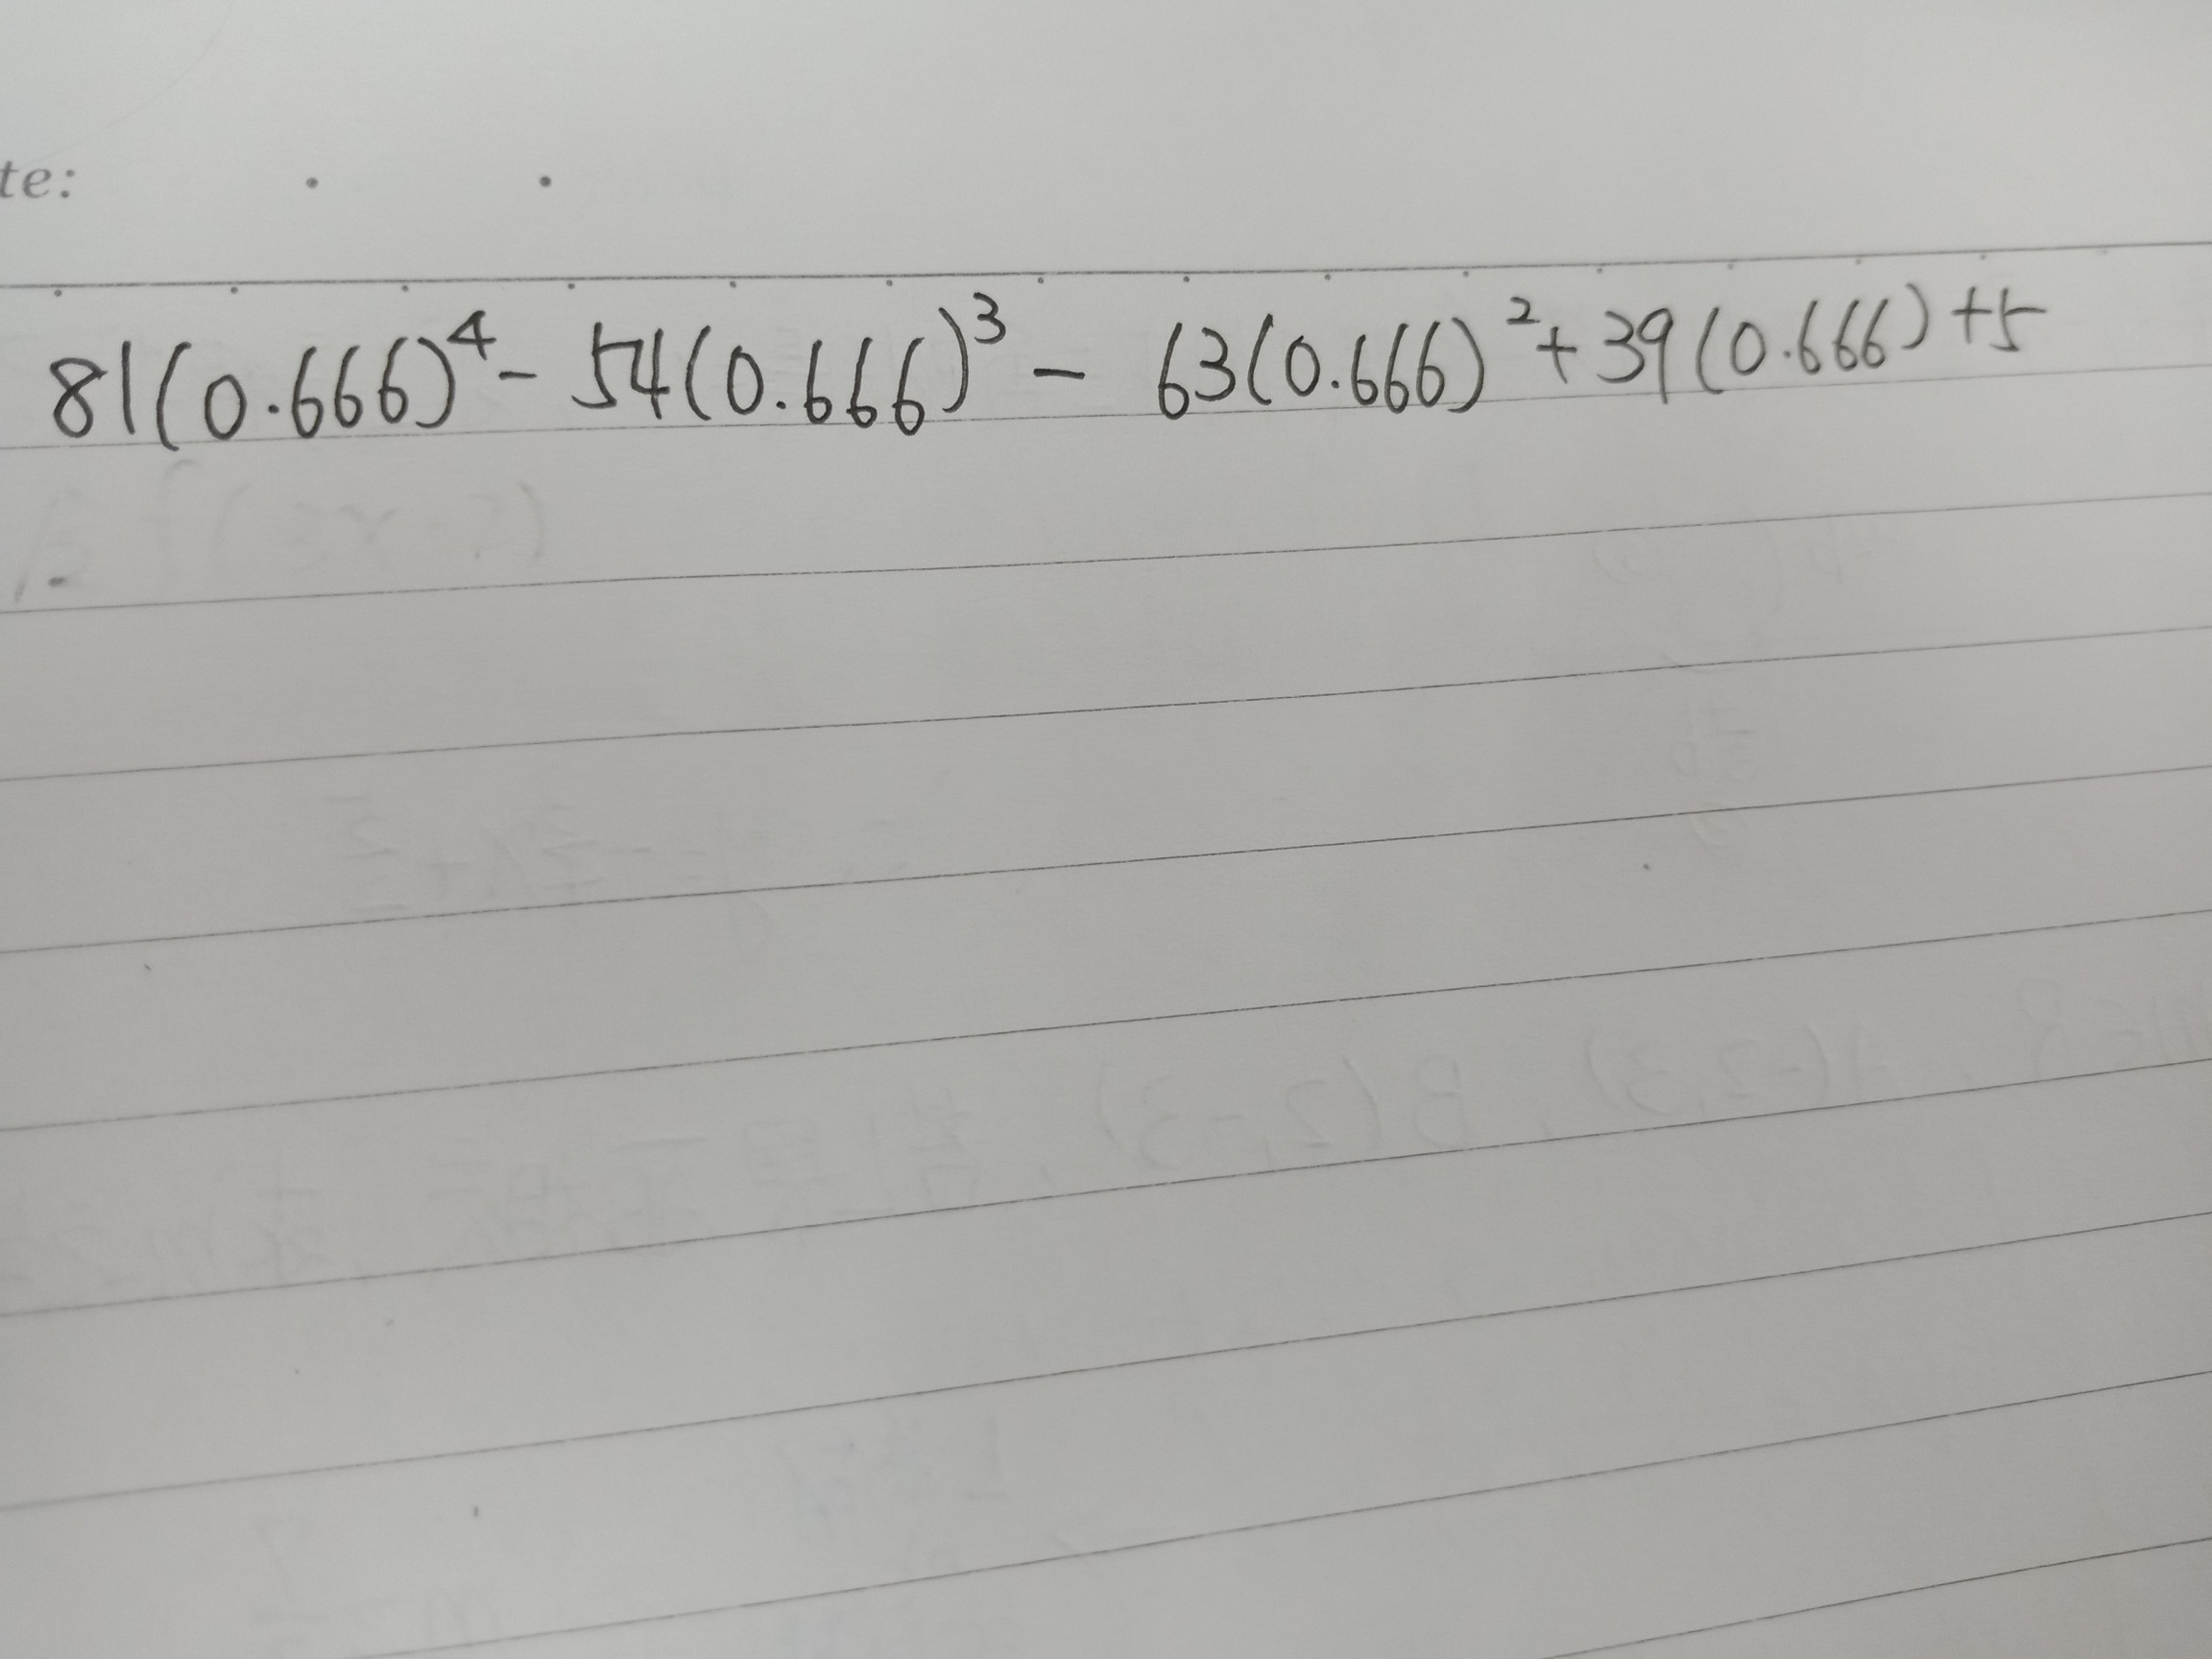 te: . .
81(0.666)⁴ - 54(0.666)³ - 63(0.666)² + 39(0.666) + 5